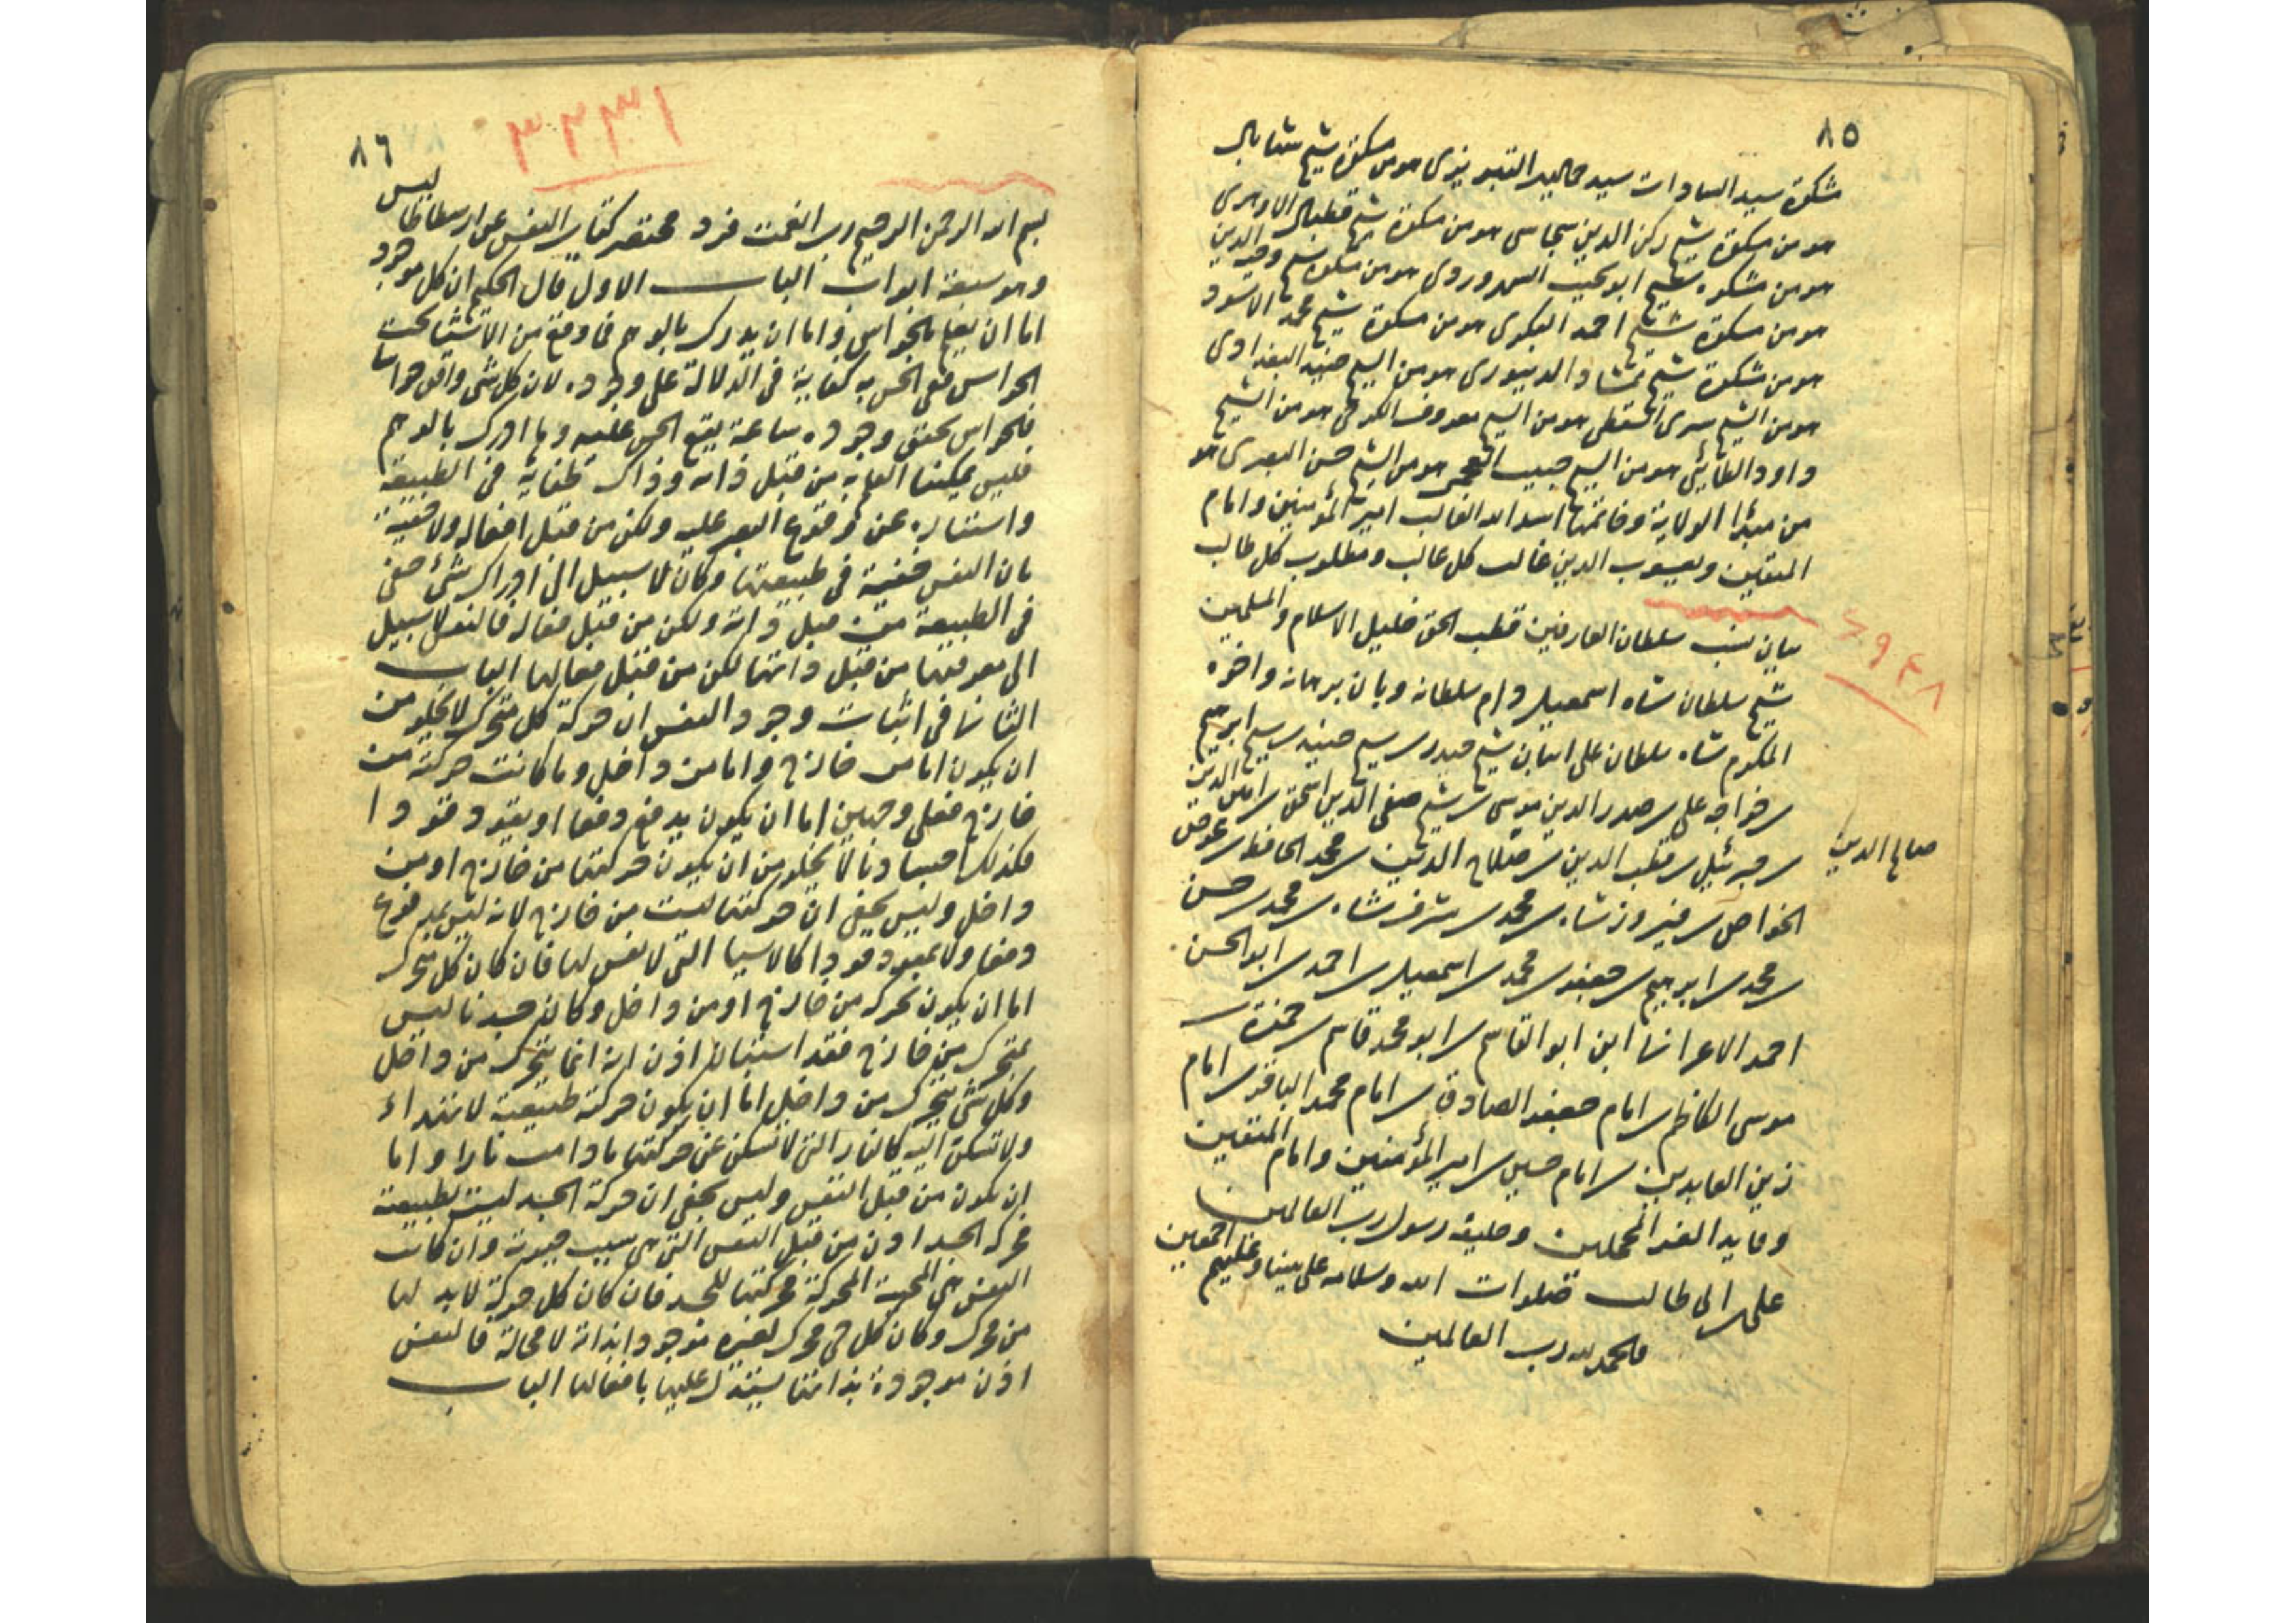 ٨٥
مشكوة سيد السادات سيد جمال الدين التبريزى هو من مشكوة شيخ شهاب الدين
هو من مشكوة شيخ ركن الدين سجاسى هو من مشكوة شيخ قطب الدين الابهرى
هو من مشكوة شيخ ابو نجيب السهروردى هو من مشكوة شيخ وجيه الدين
هو من مشكوة شيخ احمد البكرى هو من مشكوة شيخ محمد الاسود
هو من مشكوة شيخ ممشاد الدينورى هو من الشيخ جنيد البغدادى
هو من الشيخ سرى السقطى هو من الشيخ معروف الكرخى هو من الشيخ
داود الطائى هو من الشيخ حبيب العجمى هو من الشيخ حسن البصرى هو
من مبدأ الولاية وخاتمها اسد الله الغالب امير المؤمنين وامام
المتقين ويعسوب الدين غالب كل غالب ومطلوب كل طالب
بيان نسب سلطان العارفين قطب الحق خليل الاسلام والمسلمين
شيخ سلطان شاه اسمعيل دام سلطانه وبان برهانه واخوه
المكرم شاه سلطان على ابنا بن شيخ حيدر بن شيخ جنيد بن شيخ ابرهيم
بن خواجه على بن صدر الدين موسى بن شيخ صفى الدين اسحق بن امين الدين
بن جبرئيل بن قطب الدين بن صلاح الدين بن محمد الحافظ بن عوض
صالح الدين
الخواص بن فيروز شاه بن محمد بن شرفشاه بن محمد بن حسن
بن محمد بن ابرهيم بن جعفر بن محمد بن اسمعيل بن احمد بن ابو الحسن
احمد الاعرابى ابن ابو القاسم بن ابو محمد قاسم بن حمزة بن
موسى الكاظم بن امام جعفر الصادق بن امام محمد الباقر بن امام
زين العابدين بن امام حسين بن امير المؤمنين وامام المتقين
وقايد الغر المحجلين وخليفة رسول رب العالمين
على بن ابى طالب صلوات الله وسلامه على نبينا وعليهم اجمعين
والحمد لله رب العالمين
٨٦
٣٣٣١
بسم الله الرحمن الرحيم رب انعمت فزد مختصر كتاب النفس عن ارسطاطاليس
وهو سبعة ابواب الباب الاول قال الحكيم ان كل موجود
اما ان يقع بالحواس واما ان يدرك بالوهم فما وقع من الاشياء تحت
الحواس ففى الحس به كفاية فى الدلالة على وجوده لان كل شئ واقع
الحواس يحقق وجوده ساعة يقع الحس عليه وما ادرك بالوهم
فليس يمكننا من قبل ذاته وذاك لخفايه فى الطبيعة
واستتاره عن وقوع البصر عليه ولكن من قبل افعاله
بان النفس خفية فى طبيعتها وكان لا سبيل الى ادراك شئ خفى
فى الطبيعة من قبل ذاته ولكن من قبل فعاله فالنفس لا سبيل
الى معرفتها من قبل ذاتها لكن من قبل فعالها الباب
الثانى فى اثبات وجود النفس ان حركة كل متحرك لا يخلو من
ان يكون اما من خارج واما من داخل وما كانت حركته من
خارج فعلى وجهين اما ان يكون يدفع دفعا او يقود قودا
فكذلك اجسادنا لا يخلو من ان يكون حركتها من خارج او من
داخل وليس يخفى ان حركتها ليست من خارج لانه ليس بمدفوع
دفعا ولا بمقود قودا كالاشيا التى لا نفس لها فان كان كل متحرك
اما ان يكون تحركه من خارج او من داخل وكان جسدنا ليس
بمتحرك من خارج فقد استبان اذن انه انما يتحرك من داخل
وكل شئ يتحرك من داخل اما ان يكون حركته طبيعية لا تهدأ
ولا تسكن البتة كالنار التى لا تسكن عن حركتها ما دامت نارا واما
ان يكون من قبل النفس وليس يخفى ان حركة الجسد ليست طبيعية
فحركة الجسد اذن من قبل النفس التى هى سبب حيوته وان كانت
النفس هى المحيية المحركة فحركتها للجسد فان كان كل حركة لا بد لها
من محرك وكان كل شئ محرك لغيره موجودا بذاته لا محالة فالنفس
اذن موجودة بذاتها يستدل عليها بافعالها الباب